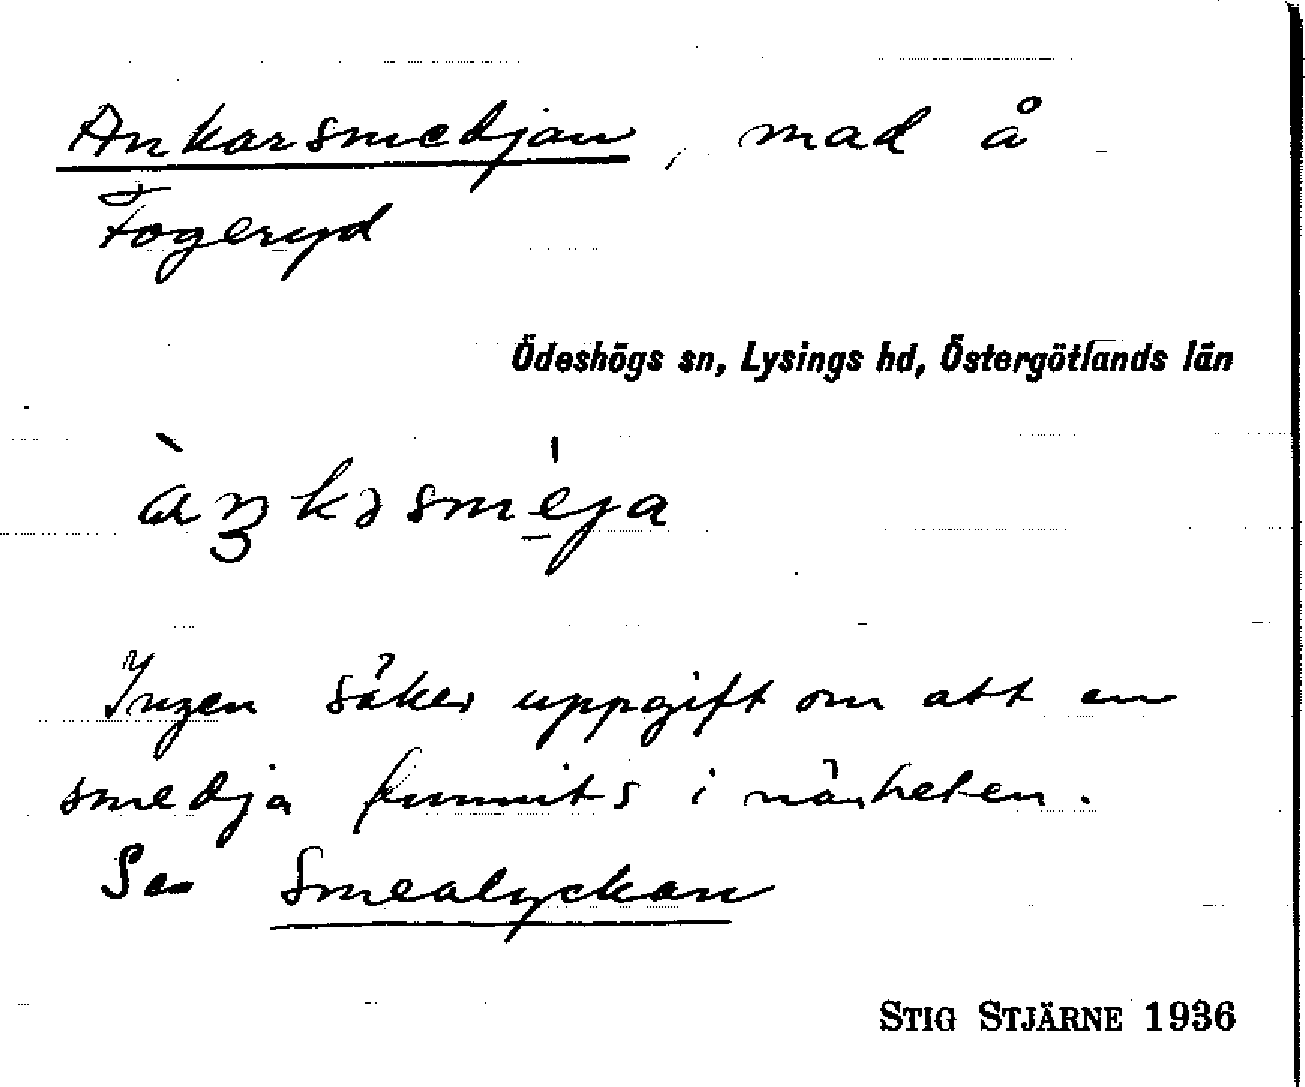 Ankarsmedjan, mad å
Fogeryd
Ödeshögs sn, Lysings hd, Östergötlands län
àŋkasmėja
Ingen säker uppgift om att en
smedja funnits i närheten.
Se Smealyckan
STIG STJÄRNE 1936